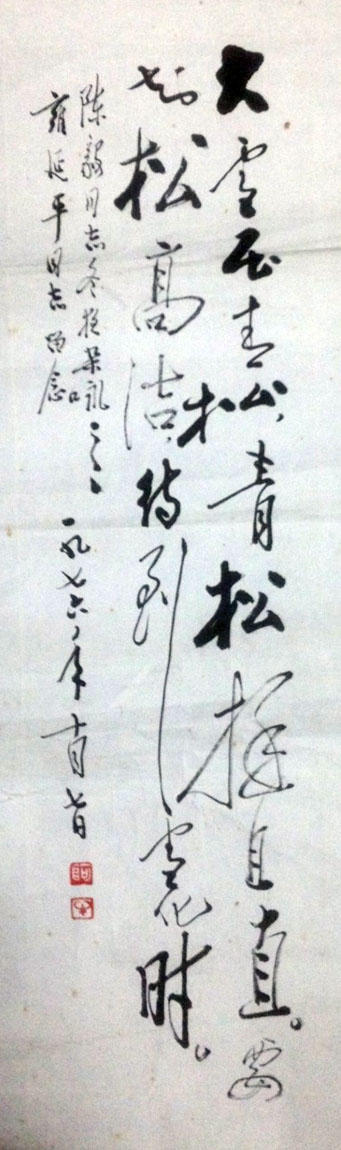 大雪压青松，青松挺且直。要
知松高洁，待到雪化时。
陈毅同志冬夜杂咏
延平同志留念
一九七六年十月七日